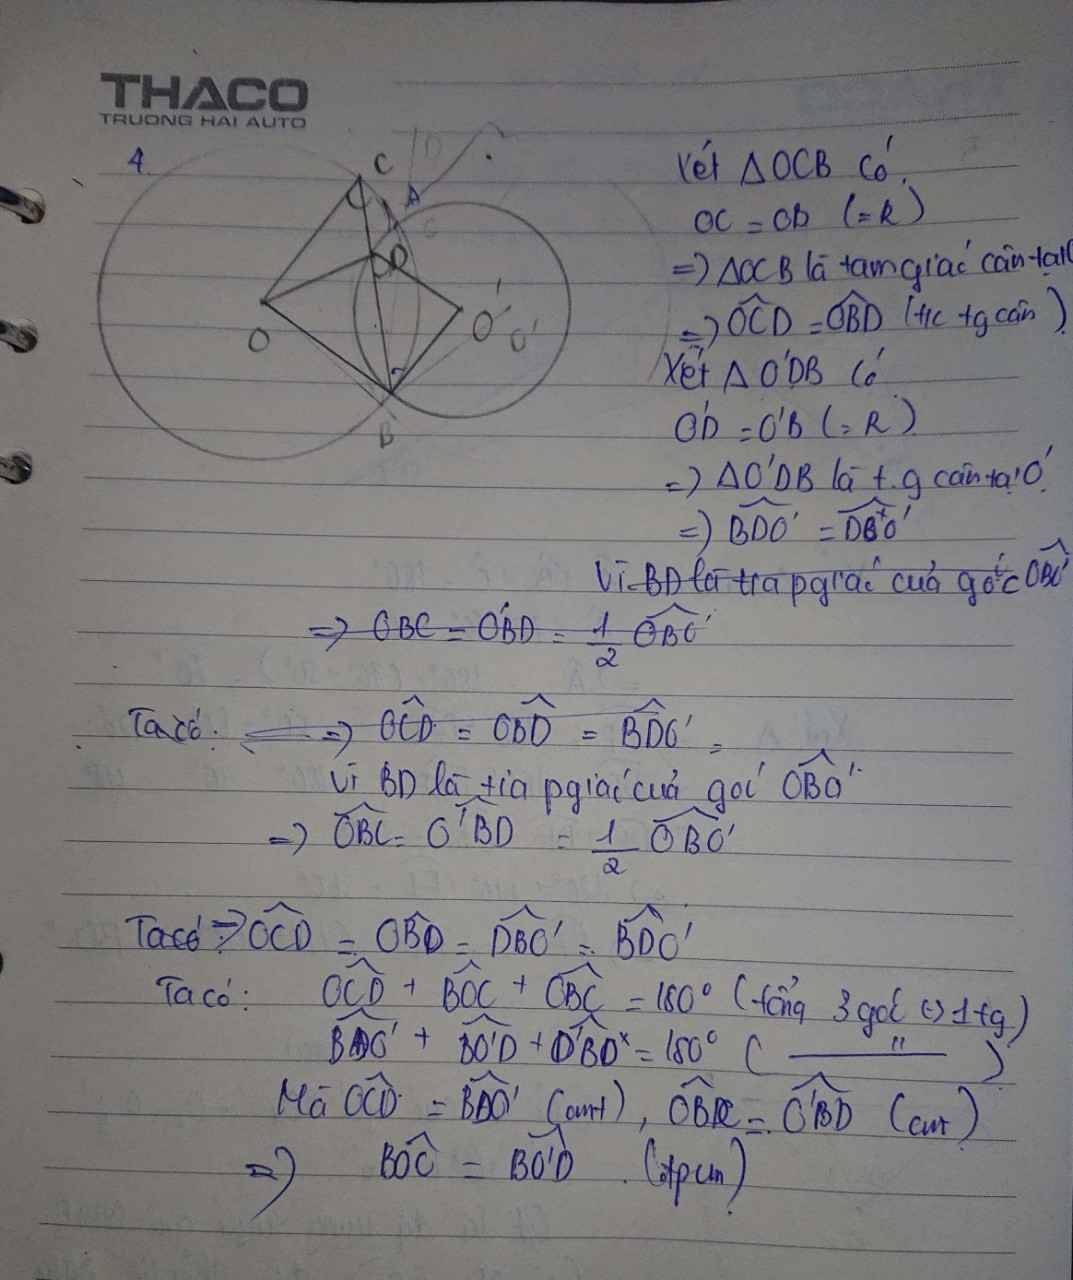 THACO
TRUONG HAI AUTO
4.
C
D
A
C
D
O
O'
O'
B
Xét ΔOCB có
OC = OB (=R)
=> ΔOCB là tam giác cân tại
=> OCD = OBD (t/c tg cân)
Xét ΔO'DB có
O'D = O'B (=R)
=> ΔO'DB là t.g cân tại O'
=> BDO' = DBO'
Vì BD là tia pgiác của góc OBO'
=> OBC = O'BD = 1/2 OBO'
Ta có: => OCD = OBD = BDO' =
Vì BD là tia pgiác của góc OBO'
=> OBC = O'BD = 1/2 OBO'
Ta có => OCD = OBD = DBO' = BDO'
Ta có: OCD + BOC + OBC = 180° (tổng 3 góc 1 tg)
BDO' + BO'D + O'BD = 180° ( — " — )
Mà OCD = BDO' (cmt), OBC = O'BD (cmt)
=> BOC = BO'D (đpcm)